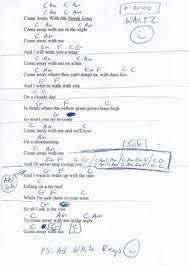 C Am C Am
Come Away With Me Norah Jones
C Am C Am
Come away with me in the night
C Am
Come away with me
Em F C G
And I will write you a song
C Am C Am
Come away with me on a bus
C Am C Am
Come away where they can't tempt us, with their lies
Em F C
And I want to walk with you
C
On a cloudy day
G F C
In fields where the yellow grass grows knee-high
G F C
So won't you try to come
C Am C Am
Come away with me and we'll kiss
C Am
On a mountaintop
C Am
Come away with me
Em F C G
And I'll never stop loving you
Solo
G F C
And I want to wake up with the rain
G F C
Falling on a tin roof
G F C
While I'm safe there in your arms
G F C
So all I ask is for you
C Am C Am
To come away with me in the night
C Am
Come away with me
WALTZ
PS: All White Keys